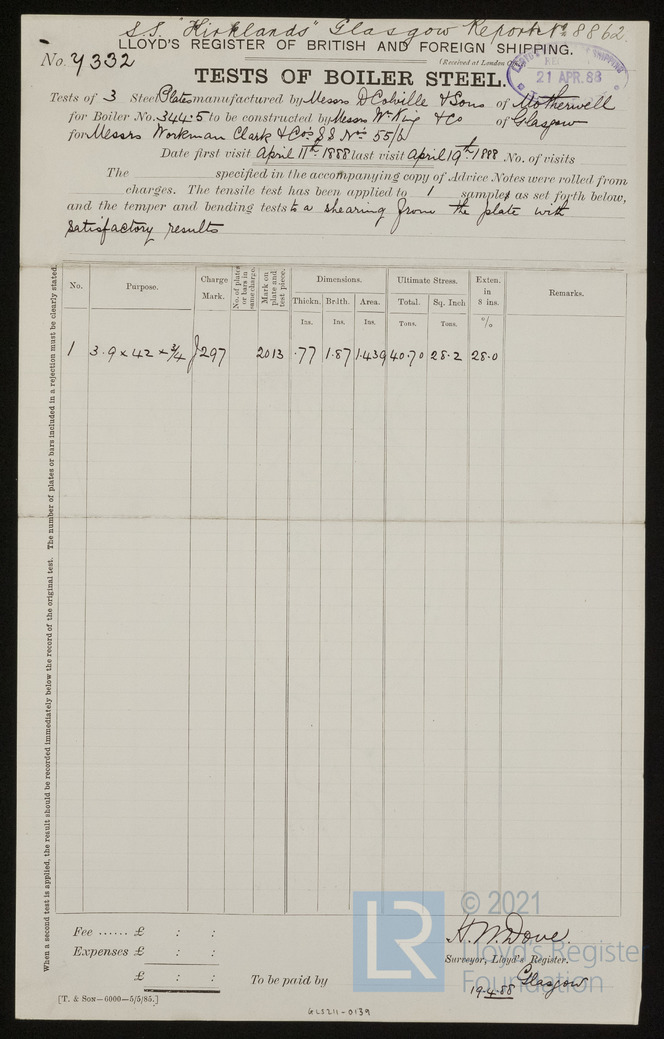 S.S. "Kirklands" Glasgow Report No 8862.
LLOYD'S REGISTER OF BRITISH AND FOREIGN SHIPPING.
No. 4332
(Received at London O
21 APR. 88
TESTS OF BOILER STEEL.
Tests of 3 Steel Plates manufactured by Messrs D Colville & Sons of Motherwell
for Boiler No. 344-5 to be constructed by Messrs Wm King & Co of Glasgow
for Messrs Workman Clark & Cos S.S No 55/6
Date first visit April 11th 1888 last visit April 19th 1888 No. of visits
The specified in the accompanying copy of Advice Notes were rolled from
charges. The tensile test has been applied to 1 samples as set forth below,
and the temper and bending tests to a shearing from the plate with
satisfactory results
When a second test is applied, the result should be recorded immediately below the record of the original test. The number of plates or bars included in a rejection must be clearly stated.
No. Purpose. Charge Mark. No. of plates or bars in same charge. Mark on plate and test piece. Dimensions. Ultimate Stress. Exten. in 8 ins. Remarks.
Thickn. Br'dth. Area. Total. Sq. Inch
Ins. Ins. Ins. Tons. Tons. %
1 3.9 x 42 x 3/4 J297 2013 .77 1.87 1.439 40.70 28.2 28.0
Fee ...... £ : :
Expenses £ : :
£ : :
To be paid by
H. W. Dove.
Surveyor, Lloyd's Register.
Glasgow
19.4.88
[T. & SON—6000—5/5/85.]
GLS211-0139
LR © 2021
Lloyd's Register
Foundation